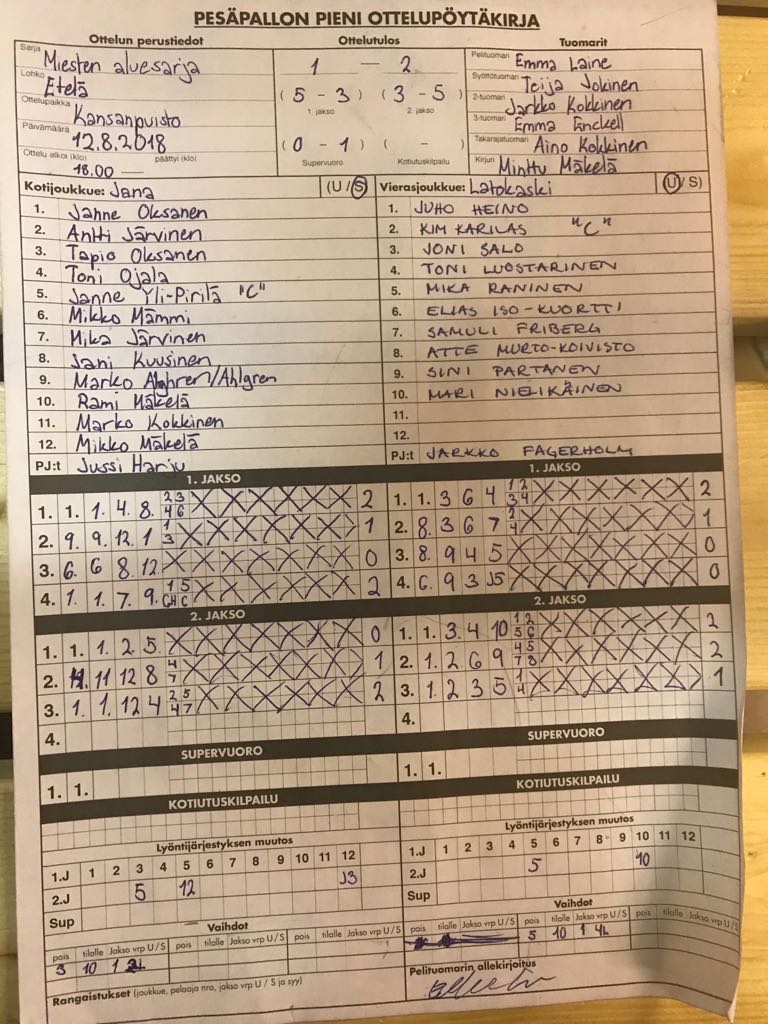 PESÄPALLON PIENI OTTELUPÖYTÄKIRJA
Ottelun perustiedot Ottelutulos Tuomarit
Sarja Miesten aluesarja
Lohko Etelä
Ottelupaikka Kansanpuisto
Päivämäärä 12.8.2018
Ottelu alkoi (klo) 18.00 — päättyi (klo)
1 — 2
( 5 - 3 ) ( 3 - 5 )
1. jakso 2. jakso
( 0 - 1 ) ( - )
Supervuoro Kotiutuskilpailu
Pelituomari Emma Laine
Syöttötuomari Teija Jokinen
2-tuomari Jarkko Kokkinen
3-tuomari Emma Enckell
Takarajatuomari Aino Kokkinen
Kirjuri Minttu Mäkelä
Kotijoukkue: Jana (U / S)
1. Janne Oksanen
2. Antti Järvinen
3. Tapio Oksanen
4. Toni Ojala
5. Janne Yli-Pirilä "C"
6. Mikko Mämmi
7. Mika Järvinen
8. Jani Kuusinen
9. Marko /Ahlgren
10. Rami Mäkelä
11. Marko Kokkinen
12. Mikko Mäkelä
PJ:t Jussi Harju
Vierasjoukkue: Latokaski (U / S)
1. JUHO HEINO
2. KIM KARILAS "C"
3. JONI SALO
4. TONI LUOSTARINEN
5. MIKA RANINEN
6. ELIAS ISO-KUORTTI
7. SAMULI FRIBERG
8. ATTE MURTO-KOIVISTO
9. SINI PARTANEN
10. MARI NIELIKÄINEN
11.
12.
PJ:t JARKKO FAGERHOLM
1. JAKSO
1. 1. 1. 4. 8. 2 3 4 6 2
2. 9. 9. 12. 1 1 3 1
3. 6. 6 8. 12 0
4. 1. 1. 7. 9. 1 5 C 2
2. JAKSO
1. 1. 1. 2 5. 0
2. 11. 11 12 8 4 7 1
3. 1. 1. 12 4 2 5 4 7 2
4.
SUPERVUORO
1. 1.
1. JAKSO
1. 1. 3 6 4 1 2 3 4 2
2. 8. 3 6 7 2 4 1
3. 8. 9 4 5 0
4. 6. 9 3 J5 0
2. JAKSO
1. 1. 3. 4 10 1 2 5 6 2
2. 1. 2 6 9 4 5 7 8 2
3. 1. 2 3 5 1 4 1
4.
SUPERVUORO
1. 1.
KOTIUTUSKILPAILU
Lyöntijärjestyksen muutos
1 2 3 4 5 6 7 8 9 10 11 12
1.J
2.J 5 12 J3
Sup
Vaihdot
pois tilalle Jakso vrp U / S pois tilalle Jakso vrp U / S pois tilalle Jakso vrp U / S
3 10 1
Rangaistukset (joukkue, pelaaja nro, jakso vrp U / S ja syy)
KOTIUTUSKILPAILU
Lyöntijärjestyksen muutos
1 2 3 4 5 6 7 8 9 10 11 12
1.J 5 10
2.J
Sup
Vaihdot
pois tilalle Jakso vrp U / S pois tilalle Jakso vrp U / S pois tilalle Jakso vrp U / S
5 10 1 4L
Pelituomarin allekirjoitus